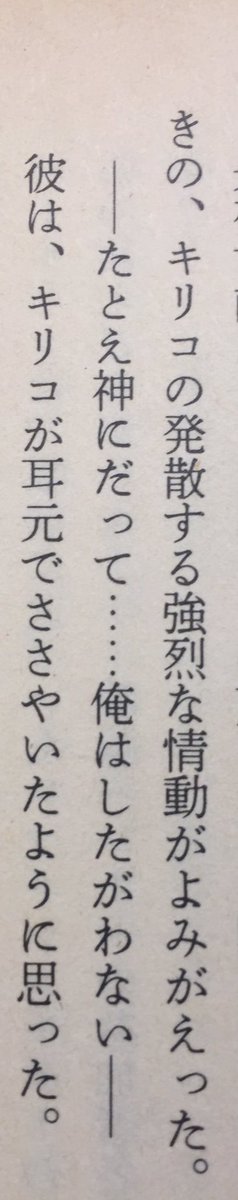 きの、キリコの発散する強烈な情動がよみがえった。
――たとえ神にだって……俺はしたがわない――
彼は、キリコが耳元でささやいたように思った。